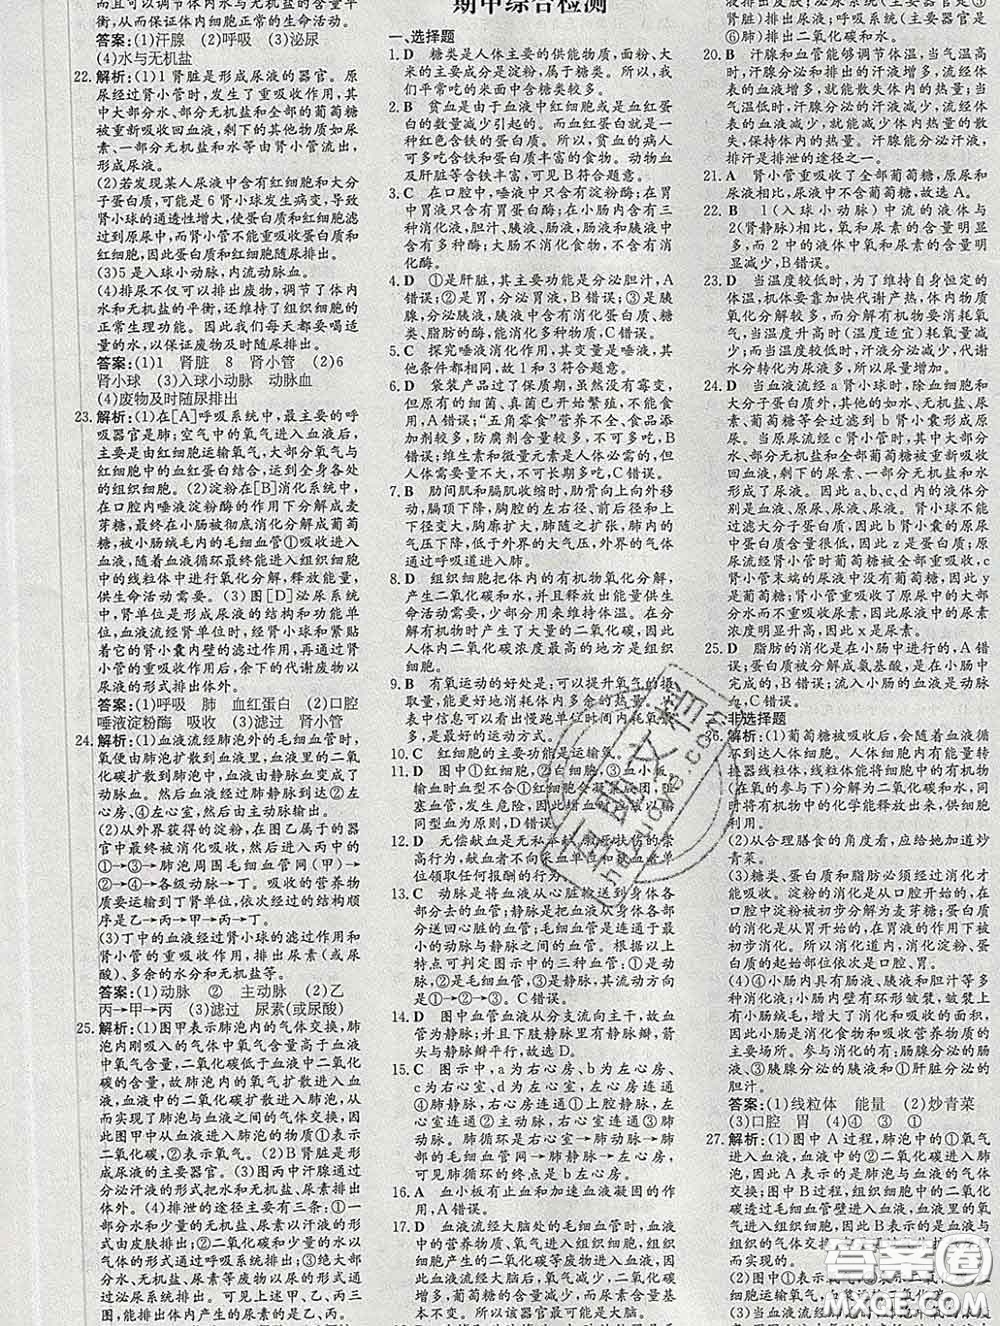 从而保证体内细胞的生命活动。
答案:(1)汗腺　(2)呼吸　(3)泌尿
(4)水与无机盐
22. 解析:(1)1 肾脏是形成尿液的器官。原
尿经过肾小管时,发生了重吸收作用,其
中大部分水、部分无机盐和全部的葡萄糖
被重新吸收回血液,剩下的其他物质如尿
素、一部分无机盐和水等由肾小管流出,
形成尿液。
(2)若发现某人尿液中含有红细胞和大分
子蛋白质,可能是 6 肾小球发生病变,导致
肾小球的通透性增大,使蛋白质和红细胞滤
过到原尿中,而肾小管不能重吸收蛋白质
和红细胞,因此蛋白质和红细胞随尿排出。
(3)5 是入球小动脉,内流动脉血。
(4)排尿不仅可以排出废物,调节了体内
水和无机盐的平衡,还维持了组织细胞的
正常生理功能。因此我们每天都要喝适
量的水,以保证废物及时随尿排出。
答案:(1)1　肾脏　8　肾小管　(2)6
肾小球　(3)入球小动脉　动脉血
(4)废物及时随尿排出
23. 解析:(1)在[A]呼吸系统中,最主要的呼
吸器官是肺;空气中的氧气进入血液后,
主要是由红细胞运输氧气,大部分氧气与
红细胞中的血红蛋白结合,运到全身各处
的组织细胞。(2)淀粉在[B]消化系统中,
在口腔内唾液淀粉酶的作用下分解成麦
芽糖,最终在小肠被彻底消化分解成葡萄
糖,被小肠绒毛内的毛细血管①吸收进入
血液,随着血液循环最终能进入组织细胞
中的线粒体中进行氧化分解,释放能量,
供生命活动需要。(3)图[D]泌尿系统中,
肾单位是形成尿液的结构和功能单
位,血液流经肾单位时,经肾小球和紧贴
着它的肾小囊内壁的滤过作用,再通过肾
小管的重吸收作用后,余下的代谢废物以
尿液的形式排出体外。
答案:(1)呼吸　肺　血红蛋白　(2)口腔
唾液淀粉酶　吸收　(3)滤过　肾小管
24. 解析:(1)血液流经肺泡外的毛细血管时,
氧便由肺泡扩散到血液里,血液里的二氧
化碳扩散到肺泡,于是血液由静脉血变成了
动脉血,然后血液经过肺静脉到达②左
心房、⑤左心室,然后由主动脉输出。
(2)从外界获得的淀粉,在图乙属于的器
官中最终被消化吸收,然后进入丙中的
①→③→④→肺泡周围毛细血管网(甲)→
②→⑤→各级动脉→丁。吸收的营养物
质要运输到丁肾单位,依次经过的结构顺
序是乙→丙→甲→丙→丁。
(3)丁中的血液经过肾小球的滤过作用和
肾小管的重吸收作用,排出尿素(或尿
酸)、多余的水分和无机盐等。
答案:(1)动脉　②　主动脉　(2)乙
丙→甲→丙　(3)滤过　尿素(或尿酸)
25. 解析:(1)图甲表示肺泡内的气体交换,肺
泡内刚吸入的气体中氧气含量高于血液
中氧气含量,二氧化碳低于血液中二氧化
碳的含量,故肺泡内的氧气扩散进入血
液,血液中的二氧化碳扩散进入肺泡,从
而实现了肺泡与血液之间的气体交换,因
此图甲中从血液进入肺泡的物质①表示
二氧化碳,②表示氧气。(2)B肾脏是形
成尿液的主要器官。(3)图丙中汗腺通过
分泌汗液的形式把水和无机盐、尿素排出
体外。(4)排泄的途径主要有三条:①一
部分水和少量的无机盐、尿素以汗液的形
式由皮肤排出;②二氧化碳和少量水以气
体的形式通过呼吸系统排出;③绝大部分
水、无机盐和尿素以尿液的形式通过泌尿
系统排出。可见上述图甲、乙、丙、丁图,
能排出体内产生的尿素的是乙、丙。
期中综合检测
一、选择题
1. D　糖类是人体主要的供能物质,面粉、大
米的主要成分是淀粉,属于糖类。所以,我
们平常吃的米面中含糖类较多。
2. B　贫血是由于血液中红细胞或是血红蛋
白的数量减少引起的。而血红蛋白是一种
红色含铁的蛋白质。所以,贫血的病人
可多吃含铁和蛋白质丰富的食物。动物血
及肝脏等含铁丰富,可见 B 符合题意。
3. C　在口腔中,唾液中只含有淀粉酶;在胃
中胃液只含有胃蛋白酶;在小肠内含有三
种消化液,胆汁、胰液、肠液,肠液和胰液中含
有多种酶;大肠不消化食物,不含有消
化酶。
4. D　①是肝脏,其主要功能是分泌胆汁,A
错误;②是胃,分泌胃液,B 错误;③是胰
腺,分泌胰液,胰液中含有消化蛋白质、糖
类、脂肪的酶,能消化多种物质,C错误。
5. C　探究唾液消化作用,其变量是唾液,其
他条件都相同,故 1 和 3 符合题意。
6. D　袋装产品过了保质期,虽然没有霉变,
但原有的细菌、真菌已开始繁殖,不能食
用,A错误;“五角零食”营养不全、食品添
加剂较多,防腐剂含量较多,不可多吃,B错
误;维生素和微量元素是人体必需的,但
人体需要量不大,不可长期多吃,C 错误。
7. D　肋间肌和膈肌收缩时,肋骨向上向外移
动,膈顶下降,胸腔的左右径、前后径和上
下径变大,胸廓扩大,肺随之扩张,肺内的
气压下降,低于外界的大气压,外界的气体
通过呼吸道进入肺。
8. D　组织细胞把体内的有机物氧化分解,
产生二氧化碳和水,并且释放出能量供生
命活动需要,少部分用来维持体温。在分
解有机物时产生了大量的二氧化碳,因此
人体内二氧化碳浓度最高的地方是组织
细胞。
9. B　有氧运动的好处是:可以提升氧气的摄
取量,能更好地消耗体内多余的热量。
表中信息可以看出慢跑单位时间内耗氧最
多,是最好的运动方式。
10. C　红细胞的主要功能是运输氧。
11. D　图中①红细胞,②白细胞,③血小板。
输血时血型不合①红细胞会凝集成团,阻
塞血管,发生危险,因此输血应以输
同型血为原则,D 错误。
12. D　无偿献血是无私奉献、救死扶伤的崇
高行为,献血者不向采血单位和献血者单位
领取任何报酬的行为。
13. C　动脉是将血液从心脏输送到身体各
部分去的血管;静脉是将血液从身体各部
分送回心脏的血管;毛细血管是连通于最
小的动脉与静脉之间的血管。根据以上
特点可判定图示中的三种血管:①是动
脉,②是毛细血管,③是静脉。
14. D　图中血管血液从分支流向主干,故血
管为静脉;并且下肢静脉里有静脉瓣,箭
头与静脉瓣平行,故选 D。
15. C　图示中,a 为右心房、b 为左心房、
c 为右心室、d 为左心室,左心房连通
④肺静脉,右心房连通①上腔静脉,左
心室连通②主动脉,右心室连通③肺动
脉。肺循环是右心室→肺部动脉→肺部的
毛细血管网→肺部静脉→左心房,
可见肺循环的终点是 b 左心房。
16. A　血小板有止血和加速血液凝固的作
用,A 错误。
17. D　血液流经大脑处的毛细血管时,血液
中的营养物质和氧气进入组织细胞,组织
细胞产生的二氧化碳等废物进入血液,因
此血液流经大脑后,氧气减少,二氧化碳
增多,营养物质减少,尿素含量基本不变。
所以该器官最可能是大脑。
⑥肺)排出二氧化碳和水。
20. D　汗腺和血管能够调节体温,当气温高
时,汗腺分泌和排出的汗液增多,流经体
表的血液增多,就能散失体内的热量;当
气温低时,汗腺分泌的汗液减少,流经体
表的血液减少,就能减少体内热量的散
失,保持体内的热量。汗腺能分泌汗液,
排汗是排泄的途径之一。
21. A　肾小管重吸收了全部葡萄糖,原尿和
尿液相比,尿液中不含葡萄糖,故选 A。
22. B　1(入球小动脉)中流的液体与
2(肾静脉)相比,氧和尿素的含量明显
多,而 2 中的液体中氧和尿素的含量明
显减少,B错误。
23. D　当温度较低时,为了维持自身恒定的
体温,机体要靠加快代谢产热,体内物质
氧化分解较多,而分解有机物要消耗氧
气。当温度升高时(温度适宜)耗氧量减
少,体内水分因汗液增多而减少,代谢
水分转化为尿液多,所以尿量增加。
24. D　当血液流经 a 肾小球时,除血细胞和
大分子蛋白质外,其他的如水、无机盐、尿
素、葡萄糖等会过滤到 b 肾小囊腔形成
原尿。当原尿流经 c 肾小管时,其中大部
分水、部分无机盐和全部葡萄糖被重吸收
回血液,剩下的尿素、一部分无机盐和水
形成了尿液。因此 a、b、c、d内的液体分
别是血液、原尿、尿液、血液。肾小球不能
过滤大分子蛋白质,因此 b 肾小囊的原尿
中蛋白质含量很低,因此 z 是蛋白质;
原尿流经肾小管时葡萄糖被全部重吸收,
肾小管末端的尿液中没有葡萄糖,因此 y
是葡萄糖;肾小管重吸收了原尿中的大部
分水而不重吸收尿素,因此尿液中的尿素
浓度明显升高,因此 x 是尿素。
25. D　脂肪的消化是在小肠中进行的,A错
误;蛋白质分解成氨基酸,是在小肠中
完成的,B 错误;流入小肠的是消化液,不
是血液,C错误。
非选择题
26. 解析:(1)葡萄糖被吸收后,会随着血液循
环到达人体细胞。人体细胞内有能量转
换器线粒体,线粒体能将细胞中的有机物
(在氧的参与下)分解为二氧化碳和水,同
时将有机物中的化学能释放出来,供细胞
利用。
(2)从合理膳食的角度看,应给她加道炒
青菜。
(3)糖类、蛋白质和脂肪必须经过消化才
能吸收。淀粉的消化是从口腔开始的,在
口腔中淀粉被初步分解为麦芽糖;蛋白质
的消化是从胃开始的,在胃液的作用下被
初步消化。所以消化道内,消化淀粉、蛋
白质的起始部位依次是口腔、胃。
(4)④小肠内具有肠液、胰液和胆汁等多
种消化液,小肠内表面有皱襞,皱襞上有
小肠绒毛,增大了消化和吸收的面积,
因此小肠是消化食物和吸收营养物质的
主要场所。参与消化的有:肠腺分泌的肠
液,③胰腺分泌的胰液和①肝脏分泌的
胆汁。
答案:(1)线粒体　能量　(2)炒青菜
(3)口腔　胃　(4)④　③　①
27. 解析:(1)图中 A 过程,肺泡中的氧气
进入血液,血液中的二氧化碳进入肺
泡,因此 A 表示的是肺泡与血液的气体
交换。图中 B 过程,组织细胞中的二氧化
碳透过毛细血管壁进入血液,血液中的氧
气进入组织细胞,因此 B 表示的是血液与
答案圈
MXQE.COM